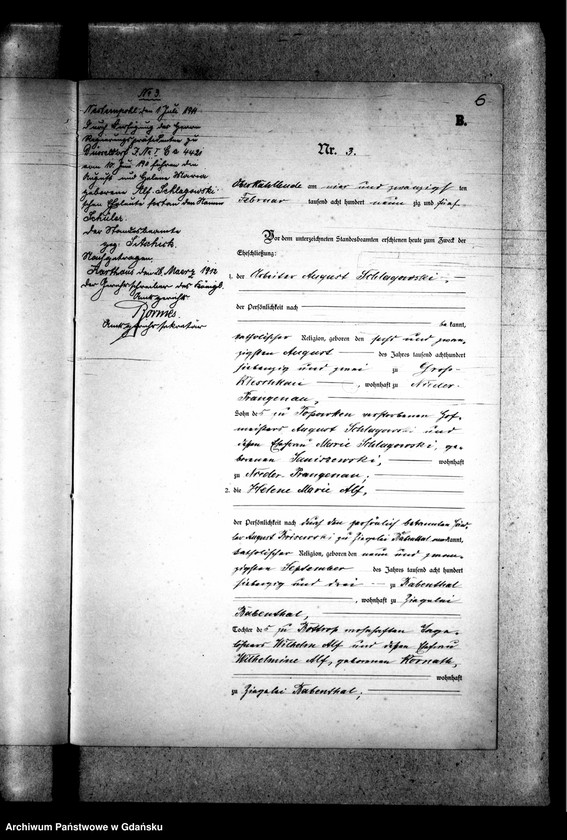 6
B.
Nr. 3.
No 3.
den 1 Juli 1911
Durch Verfügung des Herrn
Regierungspräsidenten zu
Düsseldorf
vom führen den
August und Helene Maria
geborene Alf. Schlagowski
schen Eheleute fortan den Namen
Schüler.
Der Standesbeamte
gez.
Nachgetragen
Karthaus den 28. Maerz 1912
der Gerichtsschreiber des Königl.
Amtsgerichts
Amtsgerichtssekretär
Oberkahlbude am vier und zwanzigsten
Februar tausend acht hundert neun zig und fünf.
Vor dem unterzeichneten Standesbeamten erschienen heute zum Zweck der
Eheschließung:
1. der Arbeiter August Schlagowski,
der Persönlichkeit nach
be kannt,
katholischer Religion, geboren den sechs und zwan-
zigsten August des Jahres tausend achthundert
siebenzig und zwei zu Gross-
Kleschkau, wohnhaft zu Nieder-
Prangenau,
Sohn des zu verstorbenen Hof-
meisters August Schlagowski und
dessen Ehefrau Marie Schlagowski, ge-
borenen wohnhaft
zu Nieder-Prangenau,
2. die Helene Marie Alf,
der Persönlichkeit nach durch den persönlich bekannten
August zu Ziegelei Babenthal anerkannt,
katholischer Religion, geboren den neun und zwan-
zigsten September des Jahres tausend acht hundert
siebenzig und drei zu Babenthal
, wohnhaft zu Ziegelei
Babenthal,
Tochter des zu Bottrop wohnhaften
Wilhelm Alf und dessen Ehefrau
Wilhelmine Alf, geborenen Kornath,
wohnhaft
zu Ziegelei Babenthal,
Archiwum Państwowe w Gdańsku